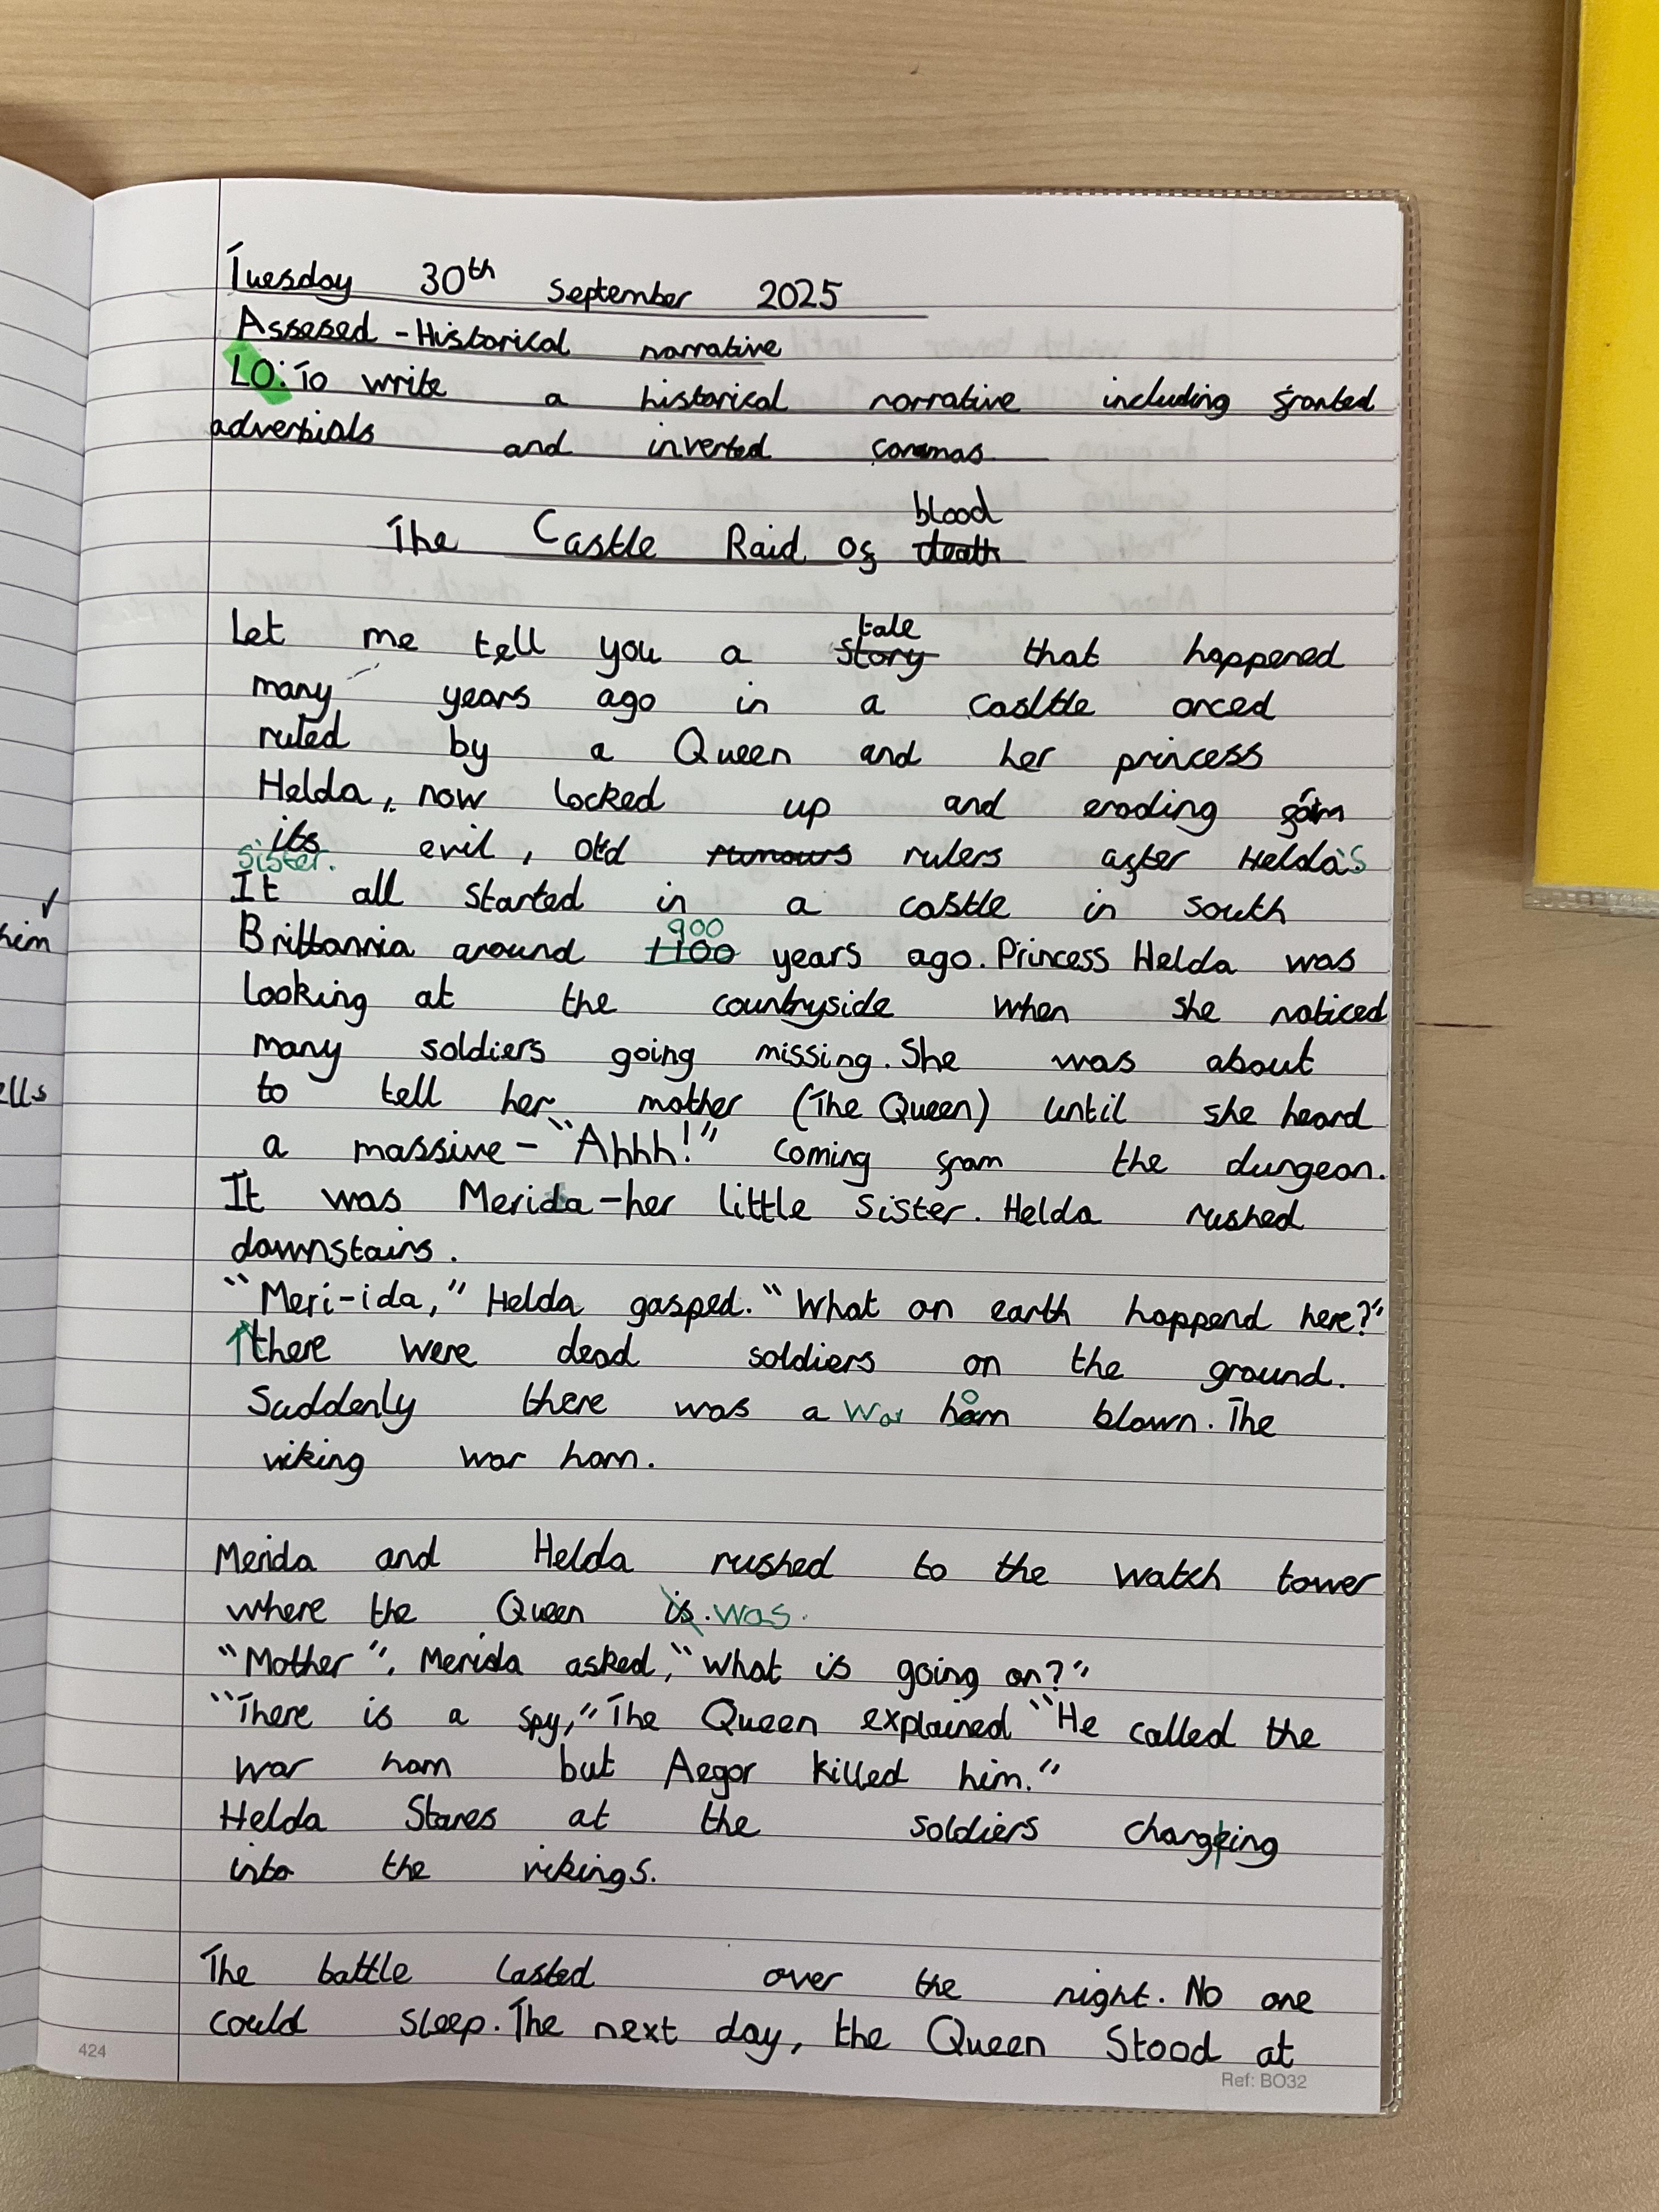 Tuesday 30th September 2025
Assesed - Historical narrative
LO: To write a historical narrative including fronted
adverbials and inverted commas
blood
The Castle Raid of death
tale
Let me tell you a story that happened
many years ago in a casltle onced
ruled by a Queen and her princess
Helda, now locked up and eroding from
its evil, old rumours rulers after Helda's
sister.
It all started in a castle in south
900
Brittannia around 1100 years ago. Princess Helda was
looking at the countryside when she noticed
many soldiers going missing. She was about
to tell her mother (The Queen) until she heard
a massive - "Ahhh!" coming from the dungeon.
It was Merida - her little sister. Helda rushed
downstairs.
"Meri-ida," Helda gasped. "What on earth happend here?"
there were dead soldiers on the ground.
Suddenly there was a war horn blown. The
viking war horn.
Merida and Helda rushed to the watch tower
where the Queen is. was.
"Mother", Merida asked, "What is going on?"
"There is a spy," The Queen explained "He called the
war horn but Aegor killed him."
Helda Stares at the soldiers changeing
into the vikings.
The battle lasted over the night. No one
could sleep. The next day, the Queen Stood at
him
ells
424
Ref: BO32